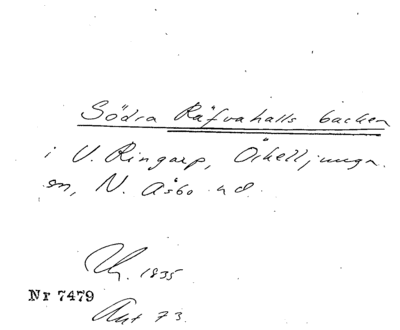 Södra Räfvahalls backen
i V. Ringarp, Örkelljunga
sn, N. Åsbo hd.
1835
Nr 7479
Akt 73.